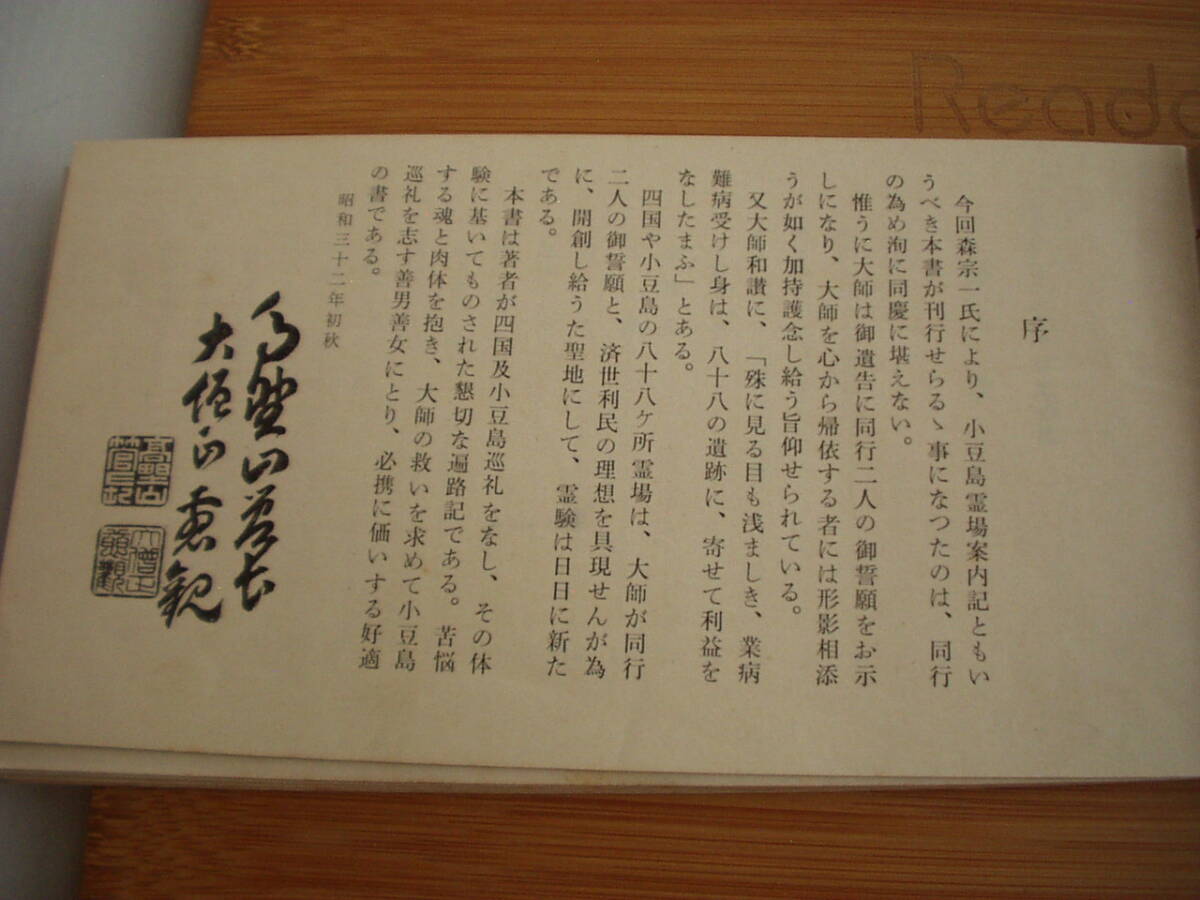 序
今回森宗一氏により、小豆島霊場案内記ともい
うべき本書が刊行せらるゝ事になつたのは、同行
の為め洵に同慶に堪えない。
惟うに大師は御遺告に同行二人の御誓願をお示
しになり、大師を心から帰依する者には形影相添
うが如く加持護念し給う旨仰せられている。
又大師和讃に、「殊に見る目も浅ましき、業病
難病受けし身は、八十八の遺跡に、寄せて利益を
なしたまふ」とある。
四国や小豆島の八十八ケ所霊場は、大師が同行
二人の御誓願と、済世利民の理想を具現せんが為
に、開創し給うた聖地にして、霊験は日日に新た
である。
本書は著者が四国及小豆島巡礼をなし、その体
験に基いてものされた懇切な遍路記である。苦悩
する魂と肉体を抱き、大師の救いを求めて小豆島
巡礼を志す善男善女にとり、必携に価いする好適
の書である。
昭和三十二年初秋
高野山管長
大僧正
Reade